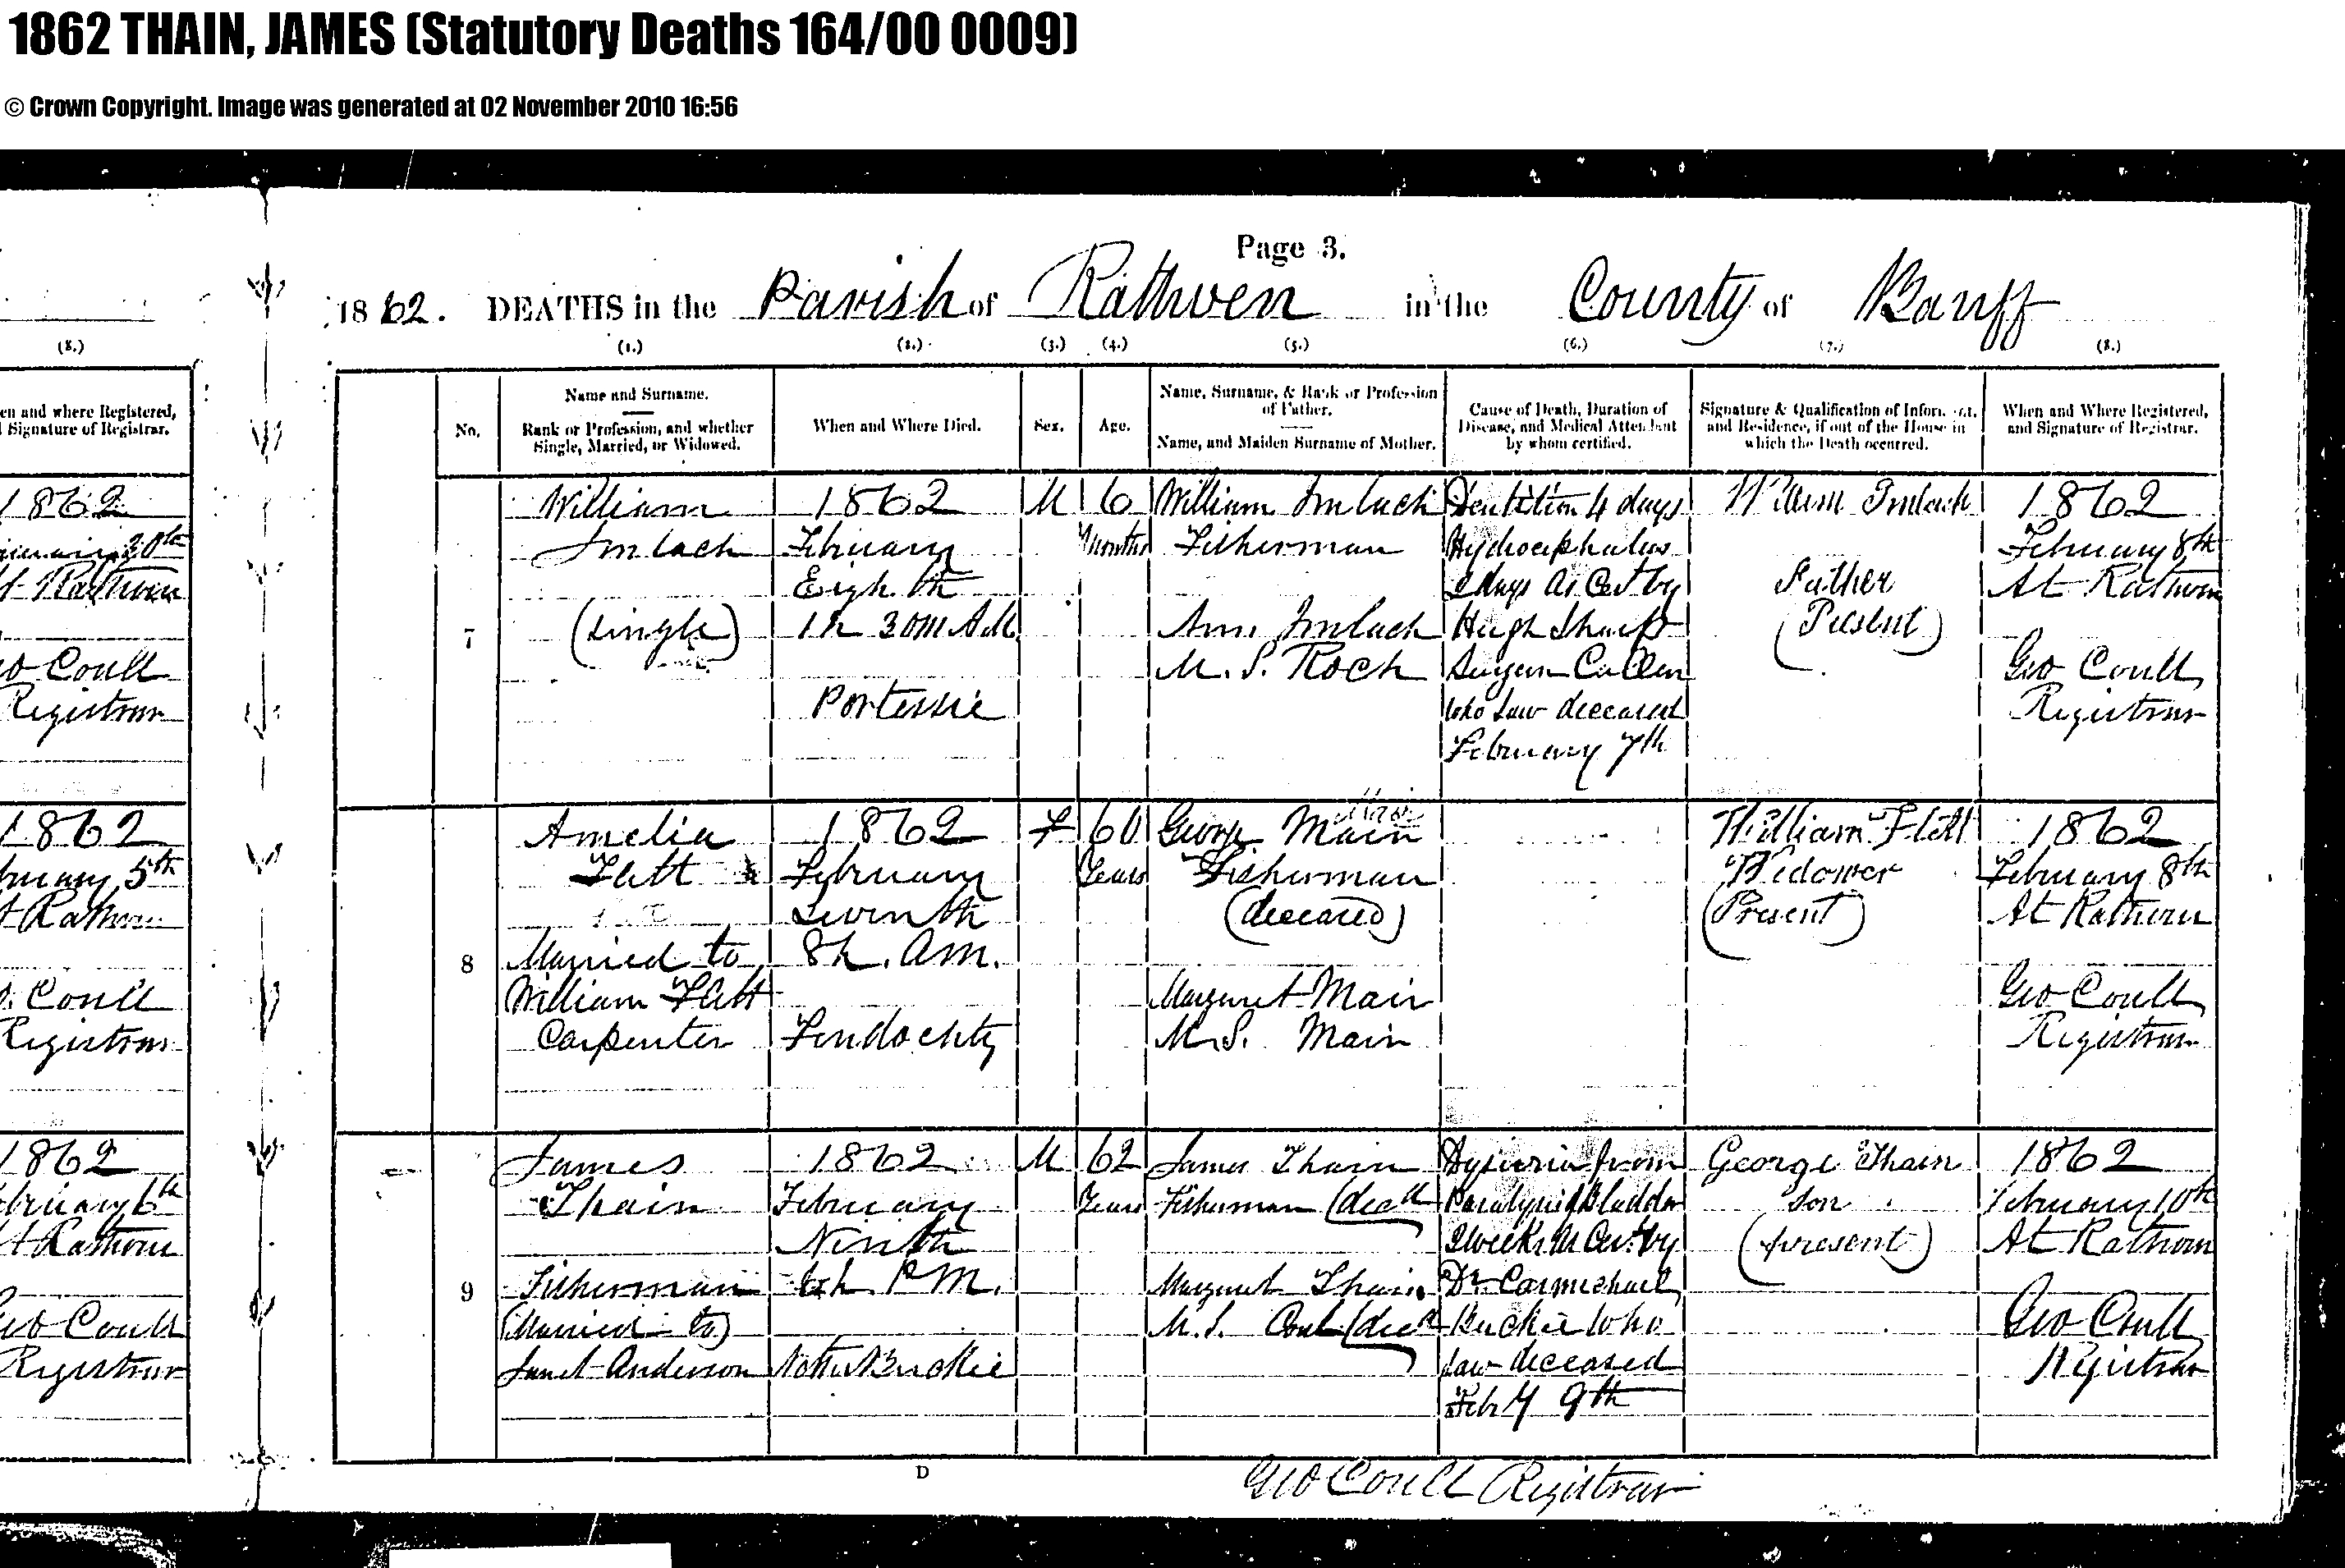 1862 THAIN, JAMES (Statutory Deaths 164/00 0009)
© Crown Copyright. Image was generated at 02 November 2010 16:56
Page 3.
1862. DEATHS in the Parish of Rathven in the County of Banff
(8.)
(1.) (2.) (3.) (4.) (5.) (6.) (7.) (8.)
en and where Registered,
Signature of Registrar.
No.
Name and Surname.
Rank or Profession, and whether
Single, Married, or Widowed.
When and Where Died.
Sex.
Age.
Name, Surname, & Rank or Profession
of Father.
Name, and Maiden Surname of Mother.
Cause of Death, Duration of
Disease, and Medical Attendant
by whom certified.
Signature & Qualification of Informant,
and Residence, if out of the House in
which the Death occurred.
When and Where Registered,
and Signature of Registrar.
1862
20th
Rathven
Coull
Registrar
7
William
Imlach
(Single)
1862
February
Eighth
1h 30m A.M.
Portessie
M
6
Months
William Imlach
Fisherman
Ann Imlach
M.S. Roch
Dentition 4 days
Hydrocephalus
2 days As Cert by
Hugh Sharp
Surgeon Cullen
who saw deceased
February 7th
William Imlach
Father
(Present)
1862
February 8th
At Rathven
Geo Coull
Registrar
1862
bruary 5th
t Rathven
Coull
Registrar
8
Amelia
Flett
Married to
William Flett
Carpenter
1862
February
Seventh
8h. A.M.
Findochty
F
60
Years
George Main
Fisherman
(deceased)
Margaret Main
M.S. Main
William Flett
Widower
(Present)
1862
February 8th
At Rathven
Geo Coull
Registrar
1862
bruary 6th
t Rathven
Geo Coull
Registrar
9
James
Thain
Fisherman
(Married to)
Janet Anderson
1862
February
Ninth
6h P.M.
Nether Buckie
M
62
Years
James Thain
Fisherman (decd
Margaret Thain
M.S. Coul (decd
Dysuria from
Paralysis of Bladder
2 weeks As Cert. by
Dr. Carmichael
Buckie who
saw deceased
Feby 9th
George Thain
Son
(present)
1862
February 10th
At Rathven
Geo Coull
Registrar
D
Geo Coull Registrar